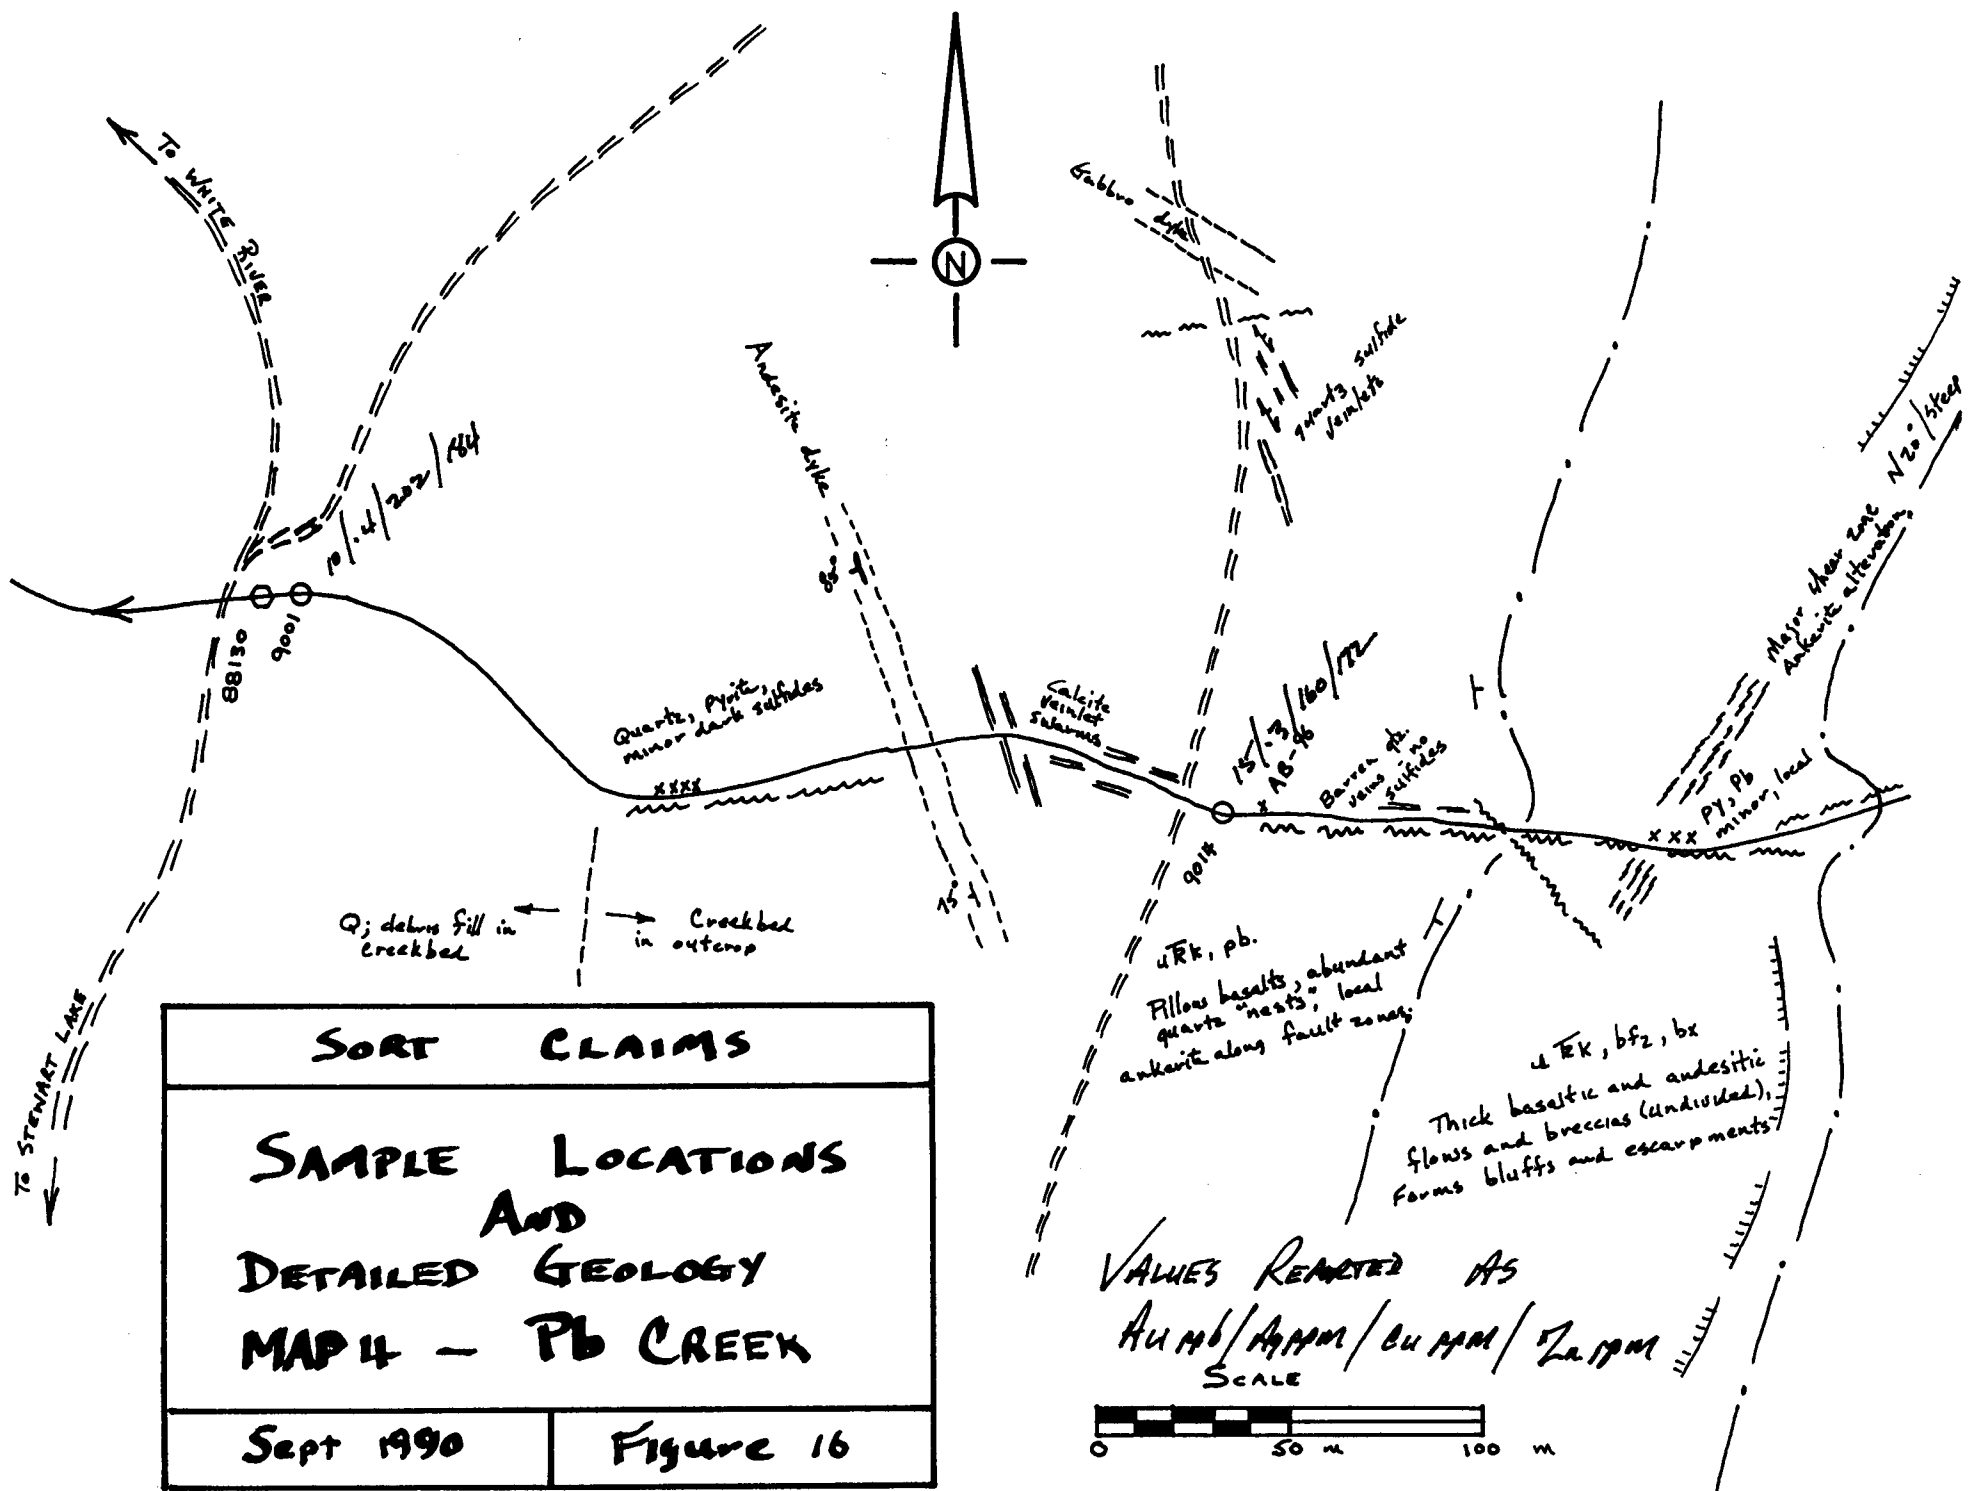 To WHITE RIVER
N
Gabbro dyke
quartz sulfide
veinlets
Andesite dyke
85°
10/.4/202/184
88130
9001
Quartz, pyrite,
minor dark sulfides
Calcite
veinlet
swarms
15/.3/160/172
AB-96
9014
Barren qtz.
veins no
sulfides
N20°/steep
Major shear zone
Ankerite alteration,
PY, Pb
minor, local
xxxx
x
xxx
75°
Q; debris fill in
creekbed
Creekbed
in outcrop
uTRK, pb.
Pillow basalts, abundant
quartz "nests", local
ankerite along fault zones.
uTRK, bf2, bx
Thick basaltic and andesitic
flows and breccias (undivided),
Forms bluffs and escarpments
To STEWART LAKE
SORT CLAIMS
SAMPLE LOCATIONS
AND
DETAILED GEOLOGY
MAP 4 - Pb CREEK
Sept 1990
Figure 16
VALUES REPORTED AS
Au ppb/Ag ppm/Cu ppm/Zn ppm
SCALE
0 50 m 100 m